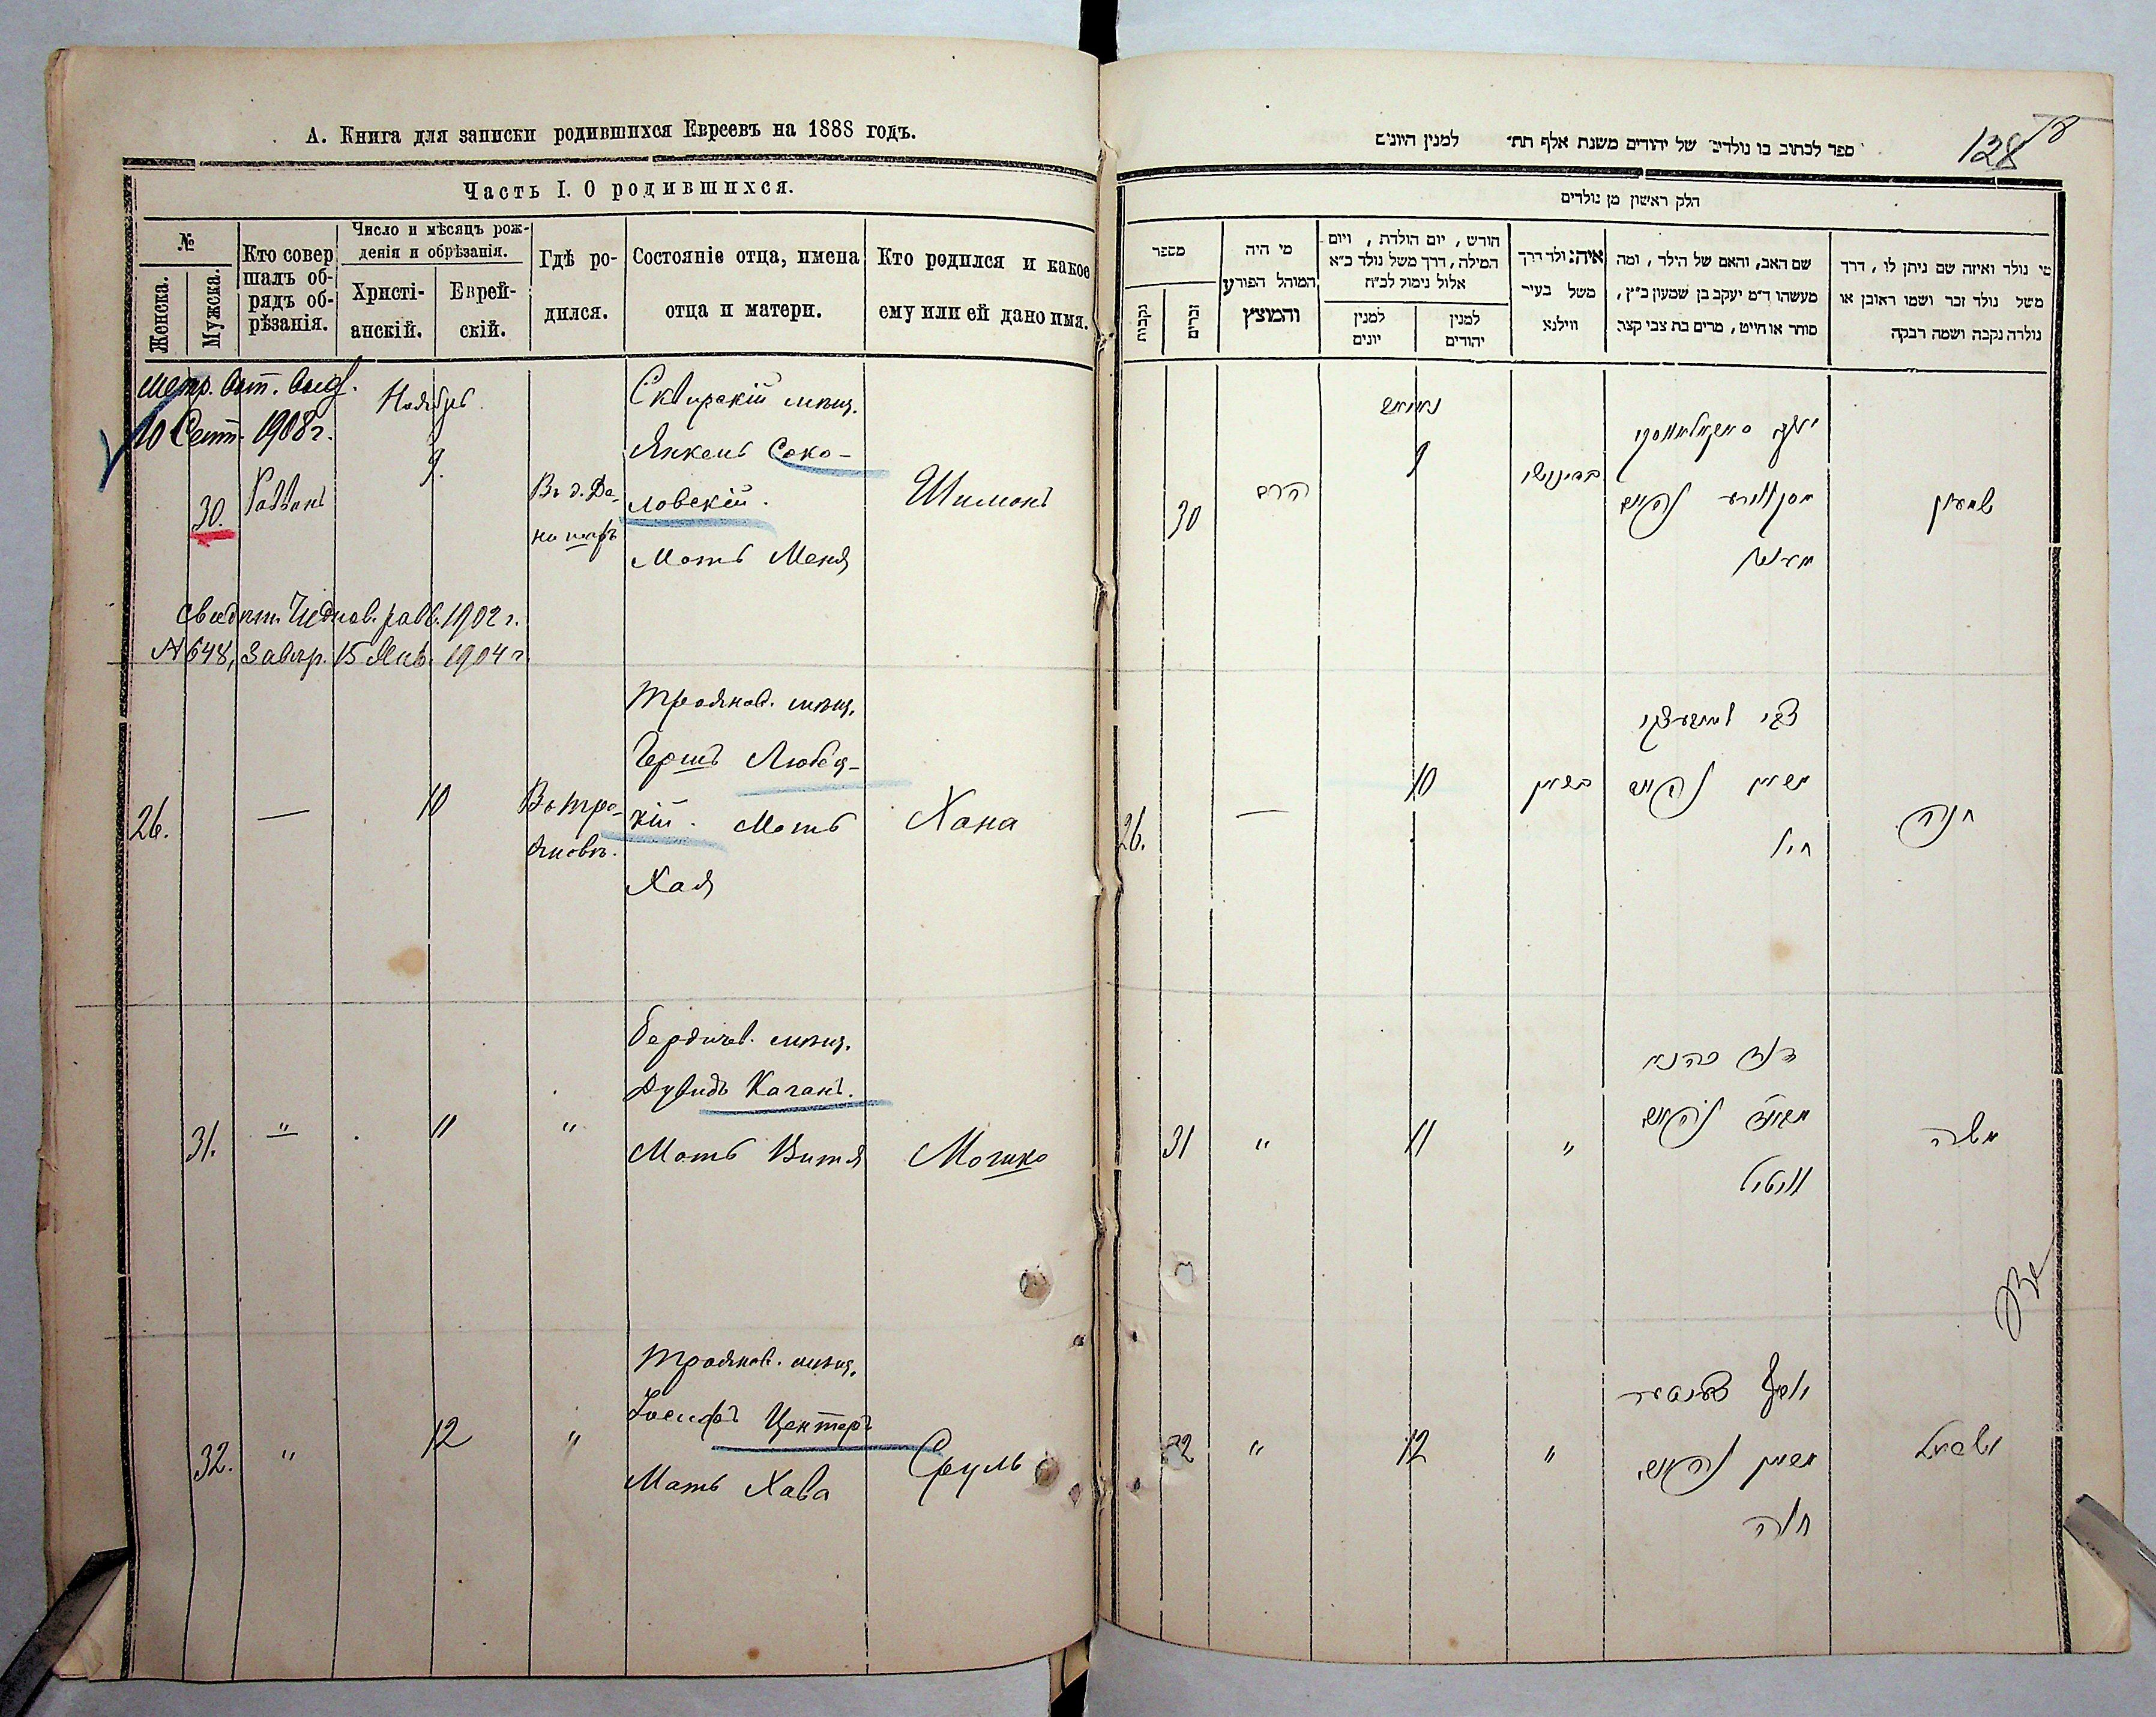 А. Книга для записки родившихся Евреевъ на 1888 годъ.
Часть I. О родившихся.
№
Женска.
Мужска.
Кто совер
шалъ об-
рядъ об-
рѣзанія.
Число и мѣсяцъ рож-
денія и обрѣзанія.
Христі-
анскій.
Еврей-
скій.
Гдѣ ро-
дился.
Состояніе отца, имена
отца и матери.
Кто родился и какое
ему или ей дано имя.
Метр. выд.
10 Сент. 1908 г.
30.
Раввинъ
Ноябрь
9.
Въ д.
Сквирскій мѣщ.
Янкель Соко-
ловскій.
Мать Меня
Шимонъ
Свидѣт. Чуднов. равв. 1902 г.
№ 648, 15 Янв. 1904 г.
26.
—
10
Въ Тро-
яновѣ.
Троянов. мѣщ.
Гершъ Любец-
кій. Мать
Хая
Хана
31.
"
11
"
Бердичев. мѣщ.
Дувидъ Каганъ.
Мать Витя
Мошко
32.
"
12
"
Троянов. мѣщ.
Іосифъ Центеръ
Мать Хава
Сруль
ספר לכתוב בו נולדים של יהודים משנת אלף תת״ למנין היונים
128
חלק ראשון מן נולדים
מספר
נקבות
זכרים
מי היה
המוהל הפורע
והמוצץ
חורש, יום הולדת, ויום
המילה, דרך משל נולד כ״א
אלול נימול לכ״ח
למנין
יונים
למנין
יהודים
איה נולד דרך
משל בעיר
ווילנא
שם האב, והאם של הילד, ומה
מעשהו ד״מ יעקב בן שמעון כ״ץ,
סוחר או חייט, מרים בת צבי קצר.
מי נולד ואיזה שם ניתן לו, דרך
משל נולד זכר ושמו ראובן או
נולדה נקבה ושמה רבקה
30
הרב
9
יעקב
שמעון
26.
—
10
צבי
חי׳
חנה
31
"
11
"
דוד כהנא
וויטיל
משה
32
"
12
"
יוסף צענטער
חוה
ישראל